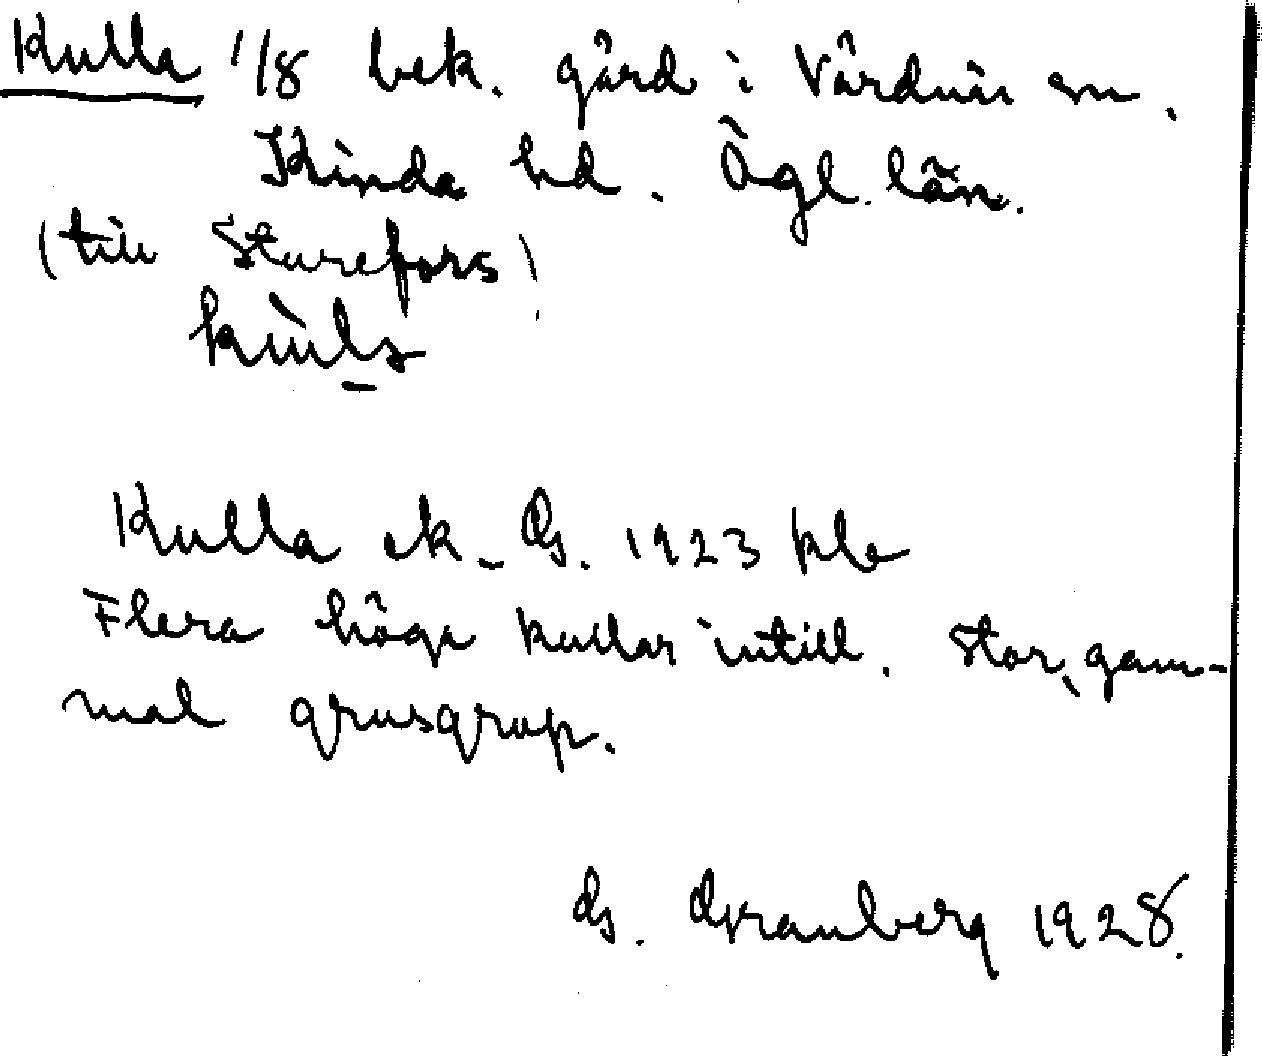 Kulla 1/8 bek. gård i Vårdnäs sn.
Kinda hd. Ögl. län.
(till Sturefors)
Kulla ek. G. 1923 kla
Flera höga kullar intill. Stor, gam-
mal grusgrop.
G. Granberg 1928.